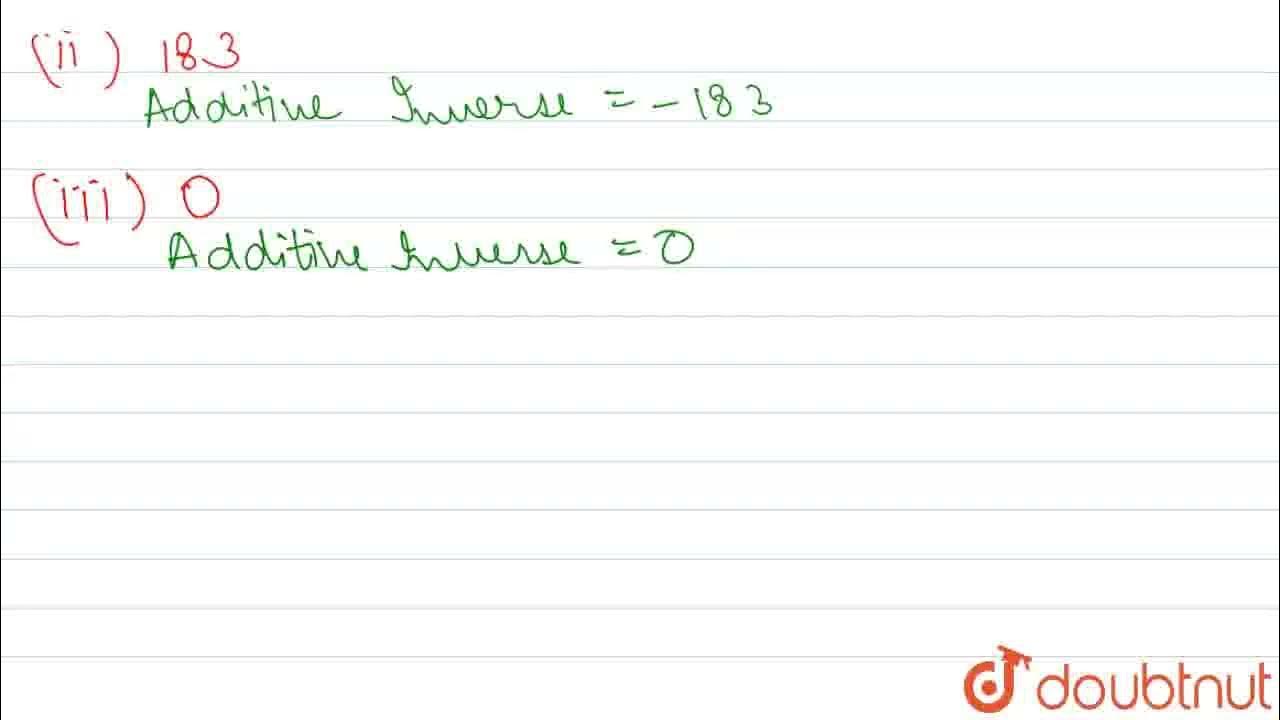 (ii) 183
Additive Inverse = -183
(iii) 0
Additive Inverse = 0
doubtnut